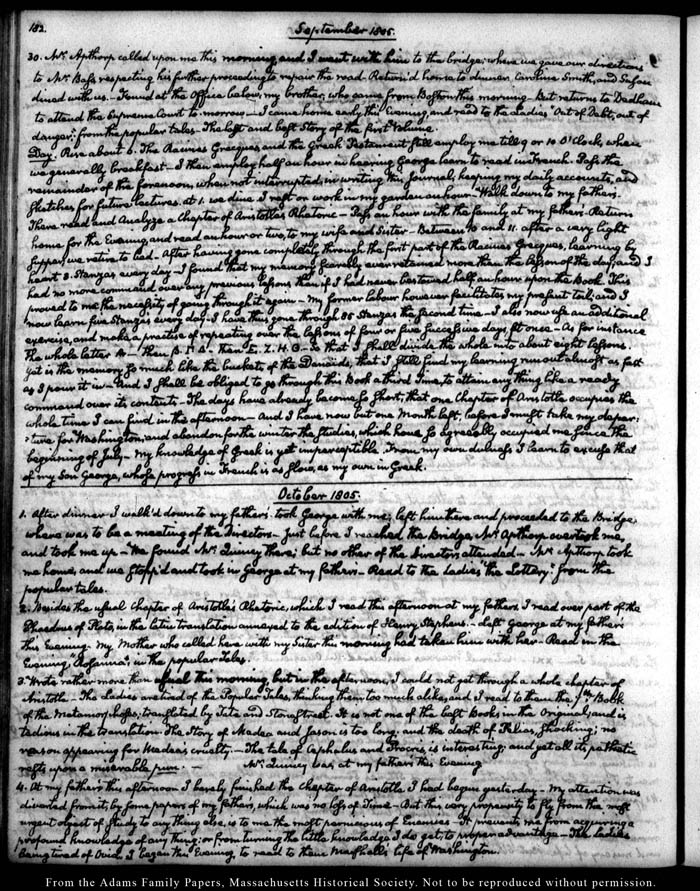 182.
September 1805.
30. Mr. Apthorp called upon me this morning, and I went with him to the bridge; where we gave our directions
to Mr. Bass respecting his further proceeding to repair the road. Return'd home to dinner. Caroline Smith, and Susan
dined with us.—Found at the Office below, my brother, who came from Boston this morning. But returns to Dedham
to attend the Supreme Court to-morrow—I came home early this Evening, and read to the Ladies Out of Debt, out of
danger; from the popular tales. The last and best Story of the first Volume.
Day. Rise about 6. The Racines Grecques, and the Greek Testament still employ me till 9 or 10 O'Clock, when
we generally breakfast—I then employ half an hour in hearing George learn to read in French. Pass the
remainder of the forenoon, when not interrupted, in writing this Journal, keeping my daily accounts, and
sketches for future lectures. at 1. we dine I rest or work in my garden an hour—Walk down to my father's.
There read and Analyze a Chapter of Aristotle's Rhetoric—Pass an hour with the family at my father's—Return
home for the Evening, and read an hour or two, to my wife and Sister—Between 10 and 11. after a very light
supper we retire to bed.—After having gone completely through the first part of the Racines Grecques, learning by
heart 3. Stanzas every day—I found that my memory scarcely ever retained more than the lesson of the day, and I
had no more command over any previous lessons than if I had never bestowed half an hour upon the Book. This
proved to me the necessity of going through it again—My former labour however facilitates my present task, and I
now learn five Stanzas every day—I have thus gone through 85 Stanzas the second time—I also now use an additional
exercise, and make a practice of repeating over the lessons of four or five successive days at once—As for instance
the whole letter A—then B. Γ. Δ—then E. Z. H. Θ—so that I shall divide the whole into about eight lessons.
Yet is the memory so much like the buckets of the Danaids, that I still find my learning run out almost as fast
as I pour it in—And I shall be obliged to go through this Book a third Time, to attain any thing like a ready
command over its contents—The days have already become so short, that one Chapter of Aristotle occupies the
whole time I can find in the afternoon—And I have now but one Month left, before I must take my depar-
-ture for Washington; and abandon for the winter the Studies, which have so agreeably occupied me since the
beginning of July—My knowledge of Greek is yet imperceptible. From my own dulness I learn to excuse that
of my Son George, whose progress in French is as slow, as my own in Greek.
October 1805.
1. After dinner I walk'd down to my father's; took George with me; left him there and proceeded to the Bridge
where was to be a meeting of the Directors—Just before I reached the Bridge, Mr. Apthorp overtook me,
and took me up—We found Mr. Quincy there; but no other of the Directors attended—Mr. Apthorp took
me home, and we stopp'd and took in George at my father's—Read to the Ladies "the Lottery" from the
popular tales.
2. Besides the usual chapter of Aristotle's Rhetoric, which I read this afternoon at my father's, I read over part of the
Phaedrus of Plato, in the latin translation annexed to the edition of Henry Stephens.—Left George at my father's
this Evening. My Mother who called here with my Sister this morning had taken him with her—Read in the
Evening "Rosanna", in the popular Tales.
3. Wrote rather more than usual this morning, but in the afternoon, I could not get through a whole chapter of
Aristotle—The Ladies are tired of the Popular Tales, thinking them too much alike, and I read to them the 7th. Book
of the Metamorphoses, translated by Tate and Stonestreet. It is not one of the best Books in the Original; and is
tedious in the translation. The Story of Medea and Jason is too long; and the death of Pelias, shocking; no
reason appearing for Medea's cruelty—The tale of Cephalus and Procris, is interesting; and yet all its pathetic
rests upon a miserable pun.— Mr. Quincy was at my father's this Evening
4. At my father's this afternoon I barely finished the chapter of Aristotle I had begun yesterday—My attention was
diverted from it, by some papers of my father's, which was no loss of Time—But this very propensity to fly from the most
urgent object of study to any thing else, is to me the most pernicious of Enemies—It prevents me from acquiring a
profound knowledge of any thing; or from turning the little knowledge I do get, to proper advantage—The Ladies
being tired of Ovid, I began this Evening to read to them Marshall's life of Washington.
From the Adams Family Papers, Massachusetts Historical Society. Not to be reproduced without permission.